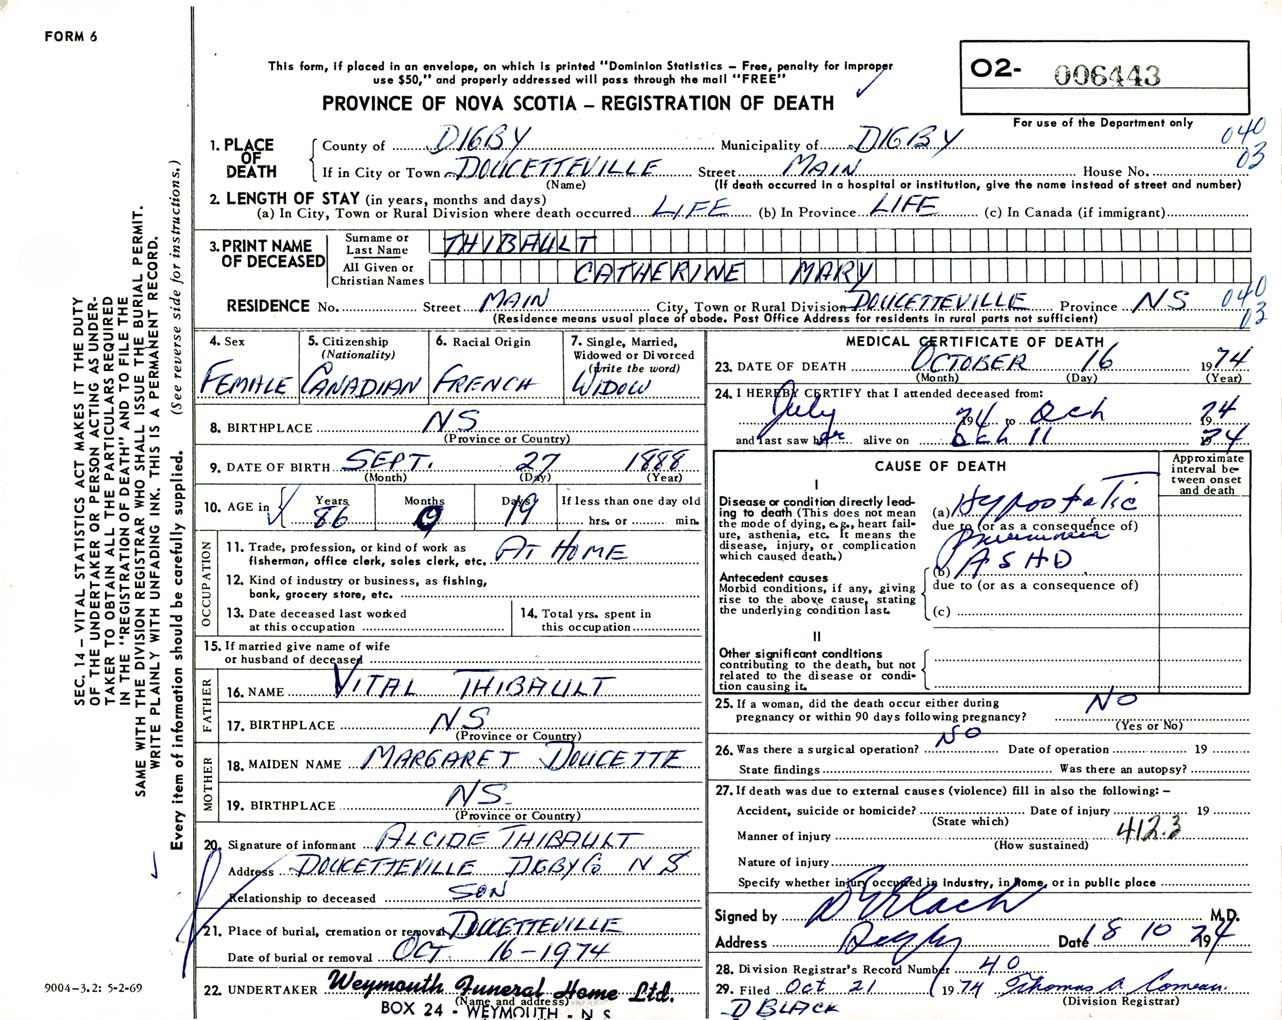 FORM 6
This form, if placed in an envelope, on which is printed "Dominion Statistics — Free, penalty for improper
use $50," and properly addressed will pass through the mail "FREE"
PROVINCE OF NOVA SCOTIA — REGISTRATION OF DEATH
O2- 006443
For use of the Department only
040
03
1. PLACE OF DEATH
County of DIGBY Municipality of DIGBY
If in City or Town DOUCETTEVILLE Street MAIN House No.
(Name) (If death occurred in a hospital or institution, give the name instead of street and number)
2. LENGTH OF STAY (in years, months and days)
(a) In City, Town or Rural Division where death occurred LIFE (b) In Province LIFE (c) In Canada (if immigrant)
3. PRINT NAME OF DECEASED
Surname or Last Name THIBAULT
All Given or Christian Names CATHERINE MARY
RESIDENCE No. Street MAIN City, Town or Rural Division DOUCETTEVILLE Province NS 040
(Residence means usual place of abode. Post Office Address for residents in rural parts not sufficient) 03
4. Sex FEMALE
5. Citizenship (Nationality) CANADIAN
6. Racial Origin FRENCH
7. Single, Married, Widowed or Divorced (write the word) WIDOW
8. BIRTHPLACE NS
(Province or Country)
9. DATE OF BIRTH SEPT. 27 1888
(Month) (Day) (Year)
10. AGE in Years 86 Months 0 Days 19 If less than one day old
hrs. or min.
OCCUPATION
11. Trade, profession, or kind of work as fisherman, office clerk, sales clerk, etc. AT HOME
12. Kind of industry or business, as fishing, bank, grocery store, etc.
13. Date deceased last worked at this occupation
14. Total yrs. spent in this occupation
15. If married give name of wife or husband of deceased
FATHER
16. NAME VITAL THIBAULT
17. BIRTHPLACE NS
(Province or Country)
MOTHER
18. MAIDEN NAME MARGARET DOUCETTE
19. BIRTHPLACE NS.
(Province or Country)
20. Signature of informant ALCIDE THIBAULT
Address DOUCETTEVILLE DIGBY Co N S
Relationship to deceased SON
21. Place of burial, cremation or removal DOUCETTEVILLE
Date of burial or removal OCT 16-1974
22. UNDERTAKER Weymouth Funeral Home Ltd.
(Name and address)
BOX 24 - WEYMOUTH - N S
MEDICAL CERTIFICATE OF DEATH
23. DATE OF DEATH OCTOBER 16 1974
(Month) (Day) (Year)
24. I HEREBY CERTIFY that I attended deceased from:
July 1974 to Oct 1974
and last saw her alive on Oct 11 1974
CAUSE OF DEATH
Approximate interval between onset and death
I
Disease or condition directly leading to death (This does not mean the mode of dying, e.g., heart failure, asthenia, etc. It means the disease, injury, or complication which caused death.)
(a) Hypostatic
due to (or as a consequence of)
pneumonia
Antecedent causes
Morbid conditions, if any, giving rise to the above cause, stating the underlying condition last.
(b) ASHD.
due to (or as a consequence of)
(c)
II
Other significant conditions
contributing to the death, but not related to the disease or condition causing it.
25. If a woman, did the death occur either during pregnancy or within 90 days following pregnancy? NO
(Yes or No)
26. Was there a surgical operation? NO Date of operation 19
State findings Was there an autopsy?
27. If death was due to external causes (violence) fill in also the following: —
Accident, suicide or homicide? Date of injury 19
(State which)
Manner of injury 412.3
(How sustained)
Nature of injury
Specify whether injury occured in Industry, in Home, or in public place
Signed by M.D.
Address Digby Date 18 10 1974
28. Division Registrar's Record Number 40
29. Filed Oct 21 1974 Thomas A Comeau
(Division Registrar)
D BLACK
SEC. 14 — VITAL STATISTICS ACT MAKES IT THE DUTY
OF THE UNDERTAKER OR PERSON ACTING AS UNDER-
TAKER TO OBTAIN ALL THE PARTICULARS REQUIRED
IN THE "REGISTRATION OF DEATH" AND TO FILE THE
SAME WITH THE DIVISION REGISTRAR WHO SHALL ISSUE THE BURIAL PERMIT.
WRITE PLAINLY WITH UNFADING INK. THIS IS A PERMANENT RECORD.
Every item of information should be carefully supplied. (See reverse side for instructions.)
9004-3.2: 5-2-69